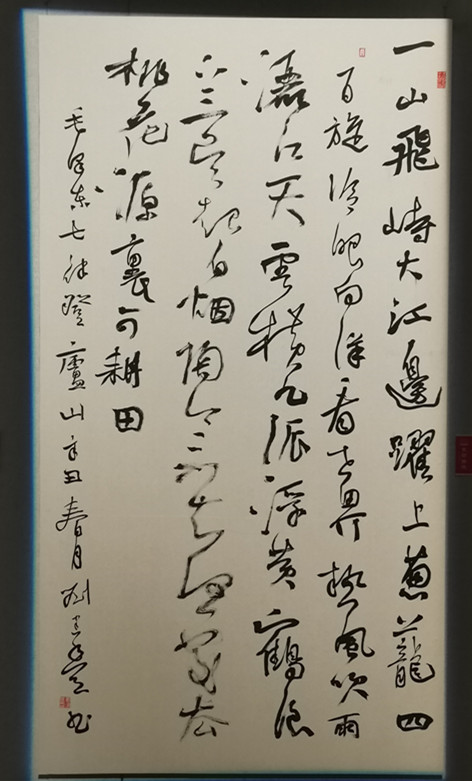 一山飛峙大江邊躍上蔥蘢四
百旋冷眼向洋看世界熱風吹雨
灑江天雲橫九派浮黃鶴浪
下三吳起白烟陶令不知何處去
桃花源裏可耕田
毛澤東七律登廬山辛丑春月